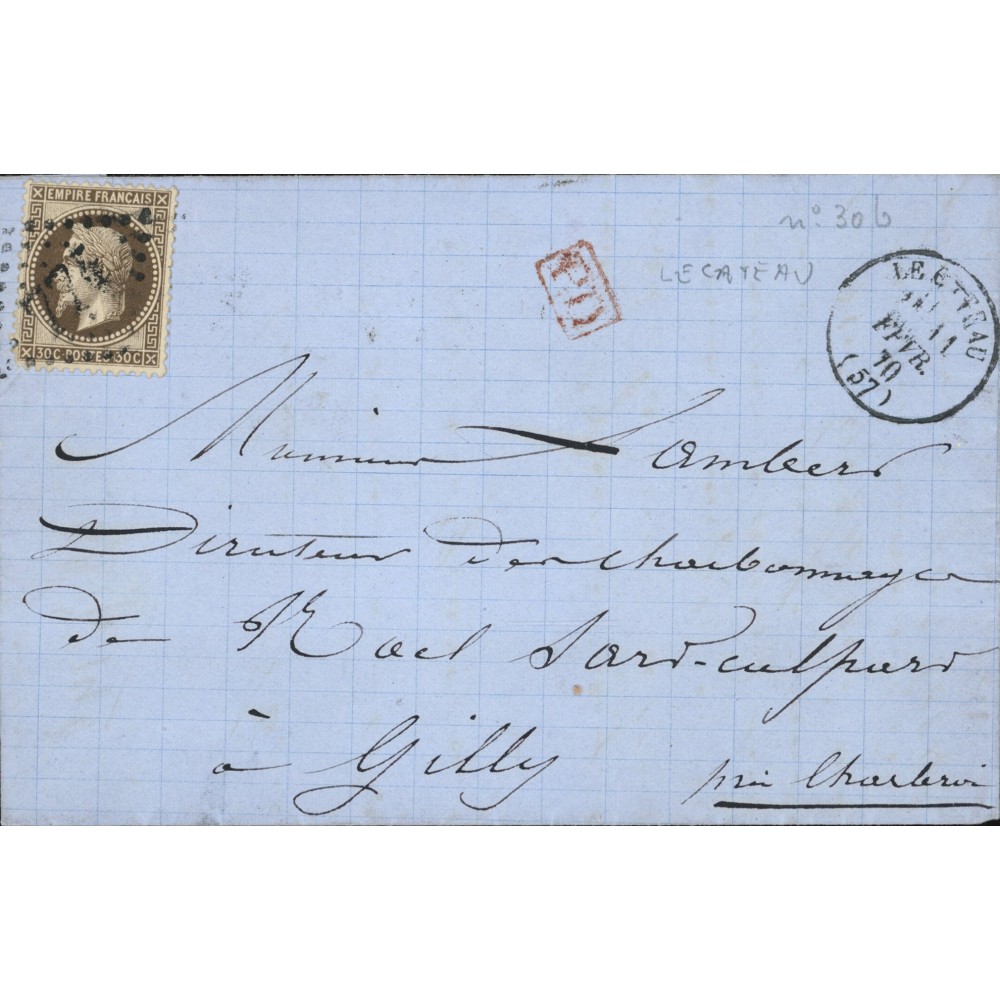 EMPIRE FRANCAIS
30C·POSTES·30C
n° 30 b
PD
LE CATEAU
LE CATEAU
11
FEVR.
70
(57)
Monsieur Lambert
Directeur des charbonnages
de Noel Sart-culpart
à Gilly
près Charleroi